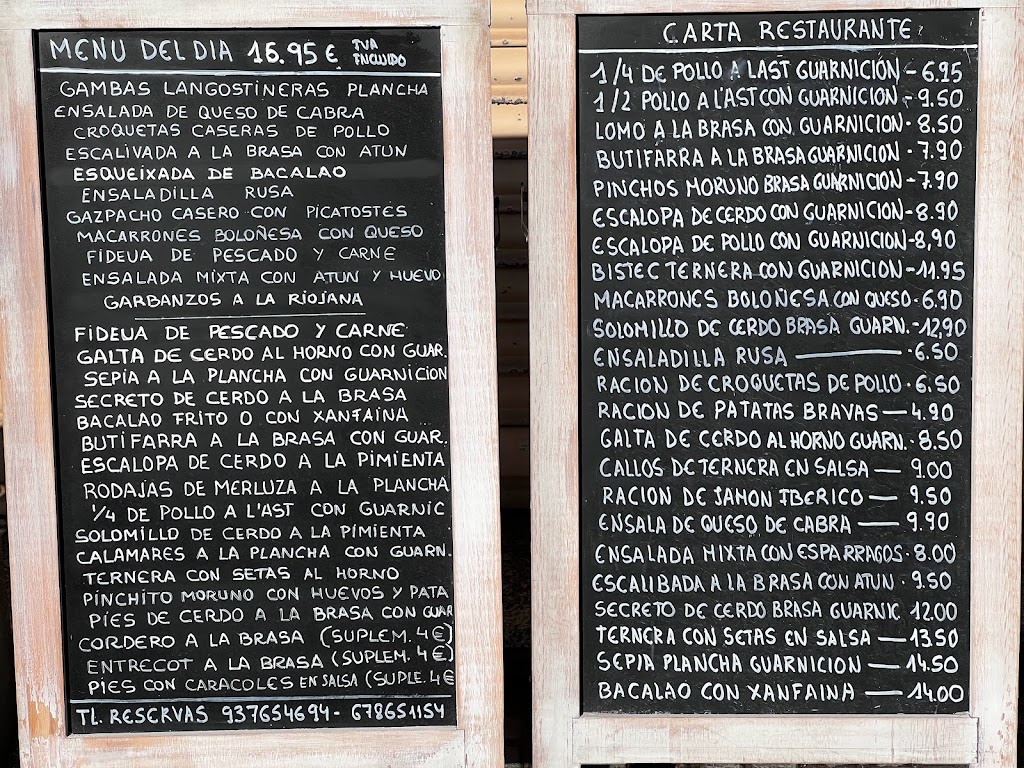 MENU DEL DIA 16.95 € IVA INCLUIDO
GAMBAS LANGOSTINERAS PLANCHA
ENSALADA DE QUESO DE CABRA
CROQUETAS CASERAS DE POLLO
ESCALIVADA A LA BRASA CON ATUN
ESQUEIXADA DE BACALAO
ENSALADILLA RUSA
GAZPACHO CASERO CON PICATOSTES
MACARRONES BOLOÑESA CON QUESO
FIDEUA DE PESCADO Y CARNE
ENSALADA MIXTA CON ATUN Y HUEVO
GARBANZOS A LA RIOJANA
FIDEUA DE PESCADO Y CARNE
GALTA DE CERDO AL HORNO CON GUAR.
SEPIA A LA PLANCHA CON GUARNICION
SECRETO DE CERDO A LA BRASA
BACALAO FRITO O CON XANFAINA
BUTIFARRA A LA BRASA CON GUAR.
ESCALOPA DE CERDO A LA PIMIENTA
RODAJAS DE MERLUZA A LA PLANCHA
1/4 DE POLLO A L'AST CON GUARNIC
SOLOMILLO DE CERDO A LA PIMIENTA
CALAMARES A LA PLANCHA CON GUARN.
TERNERA CON SETAS AL HORNO
PINCHITO MORUNO CON HUEVOS Y PATA
PIES DE CERDO A LA BRASA CON GUAR
CORDERO A LA BRASA (SUPLEM. 4€)
ENTRECOT A LA BRASA (SUPLEM. 4€)
PIES CON CARACOLES EN SALSA (SUPLE. 4€
TL. RESERVAS 937654694 - 678651154
CARTA RESTAURANTE
1/4 DE POLLO A LAST GUARNICIÓN - 6.95
1/2 POLLO A L'AST CON GUARNICION - 9.50
LOMO A LA BRASA CON GUARNICION - 8.50
BUTIFARRA A LA BRASA GUARNICION - 7.90
PINCHOS MORUNO BRASA GUARNICION - 7.90
ESCALOPA DE CERDO CON GUARNICION - 8.90
ESCALOPA DE POLLO CON GUARNICION - 8,90
BISTEC TERNERA CON GUARNICION - 11.95
MACARRONES BOLOÑESA CON QUESO - 6.90
SOLOMILLO DE CERDO BRASA GUARN. - 12,90
ENSALADILLA RUSA — 6.50
RACION DE CROQUETAS DE POLLO - 6.50
RACION DE PATATAS BRAVAS — 4.90
GALTA DE CERDO AL HORNO GUARN. - 8.50
CALLOS DE TERNERA EN SALSA — 9.00
RACION DE JAMON IBERICO — 9.50
ENSALA DE QUESO DE CABRA — 9.90
ENSALADA MIXTA CON ESPARRAGOS - 8.00
ESCALIBADA A LA BRASA CON ATUN - 9.50
SECRETO DE CERDO BRASA GUARNIC 12.00
TERNERA CON SETAS EN SALSA — 13.50
SEPIA PLANCHA GUARNICION — 14.50
BACALAO CON XANFAINA — 14.00